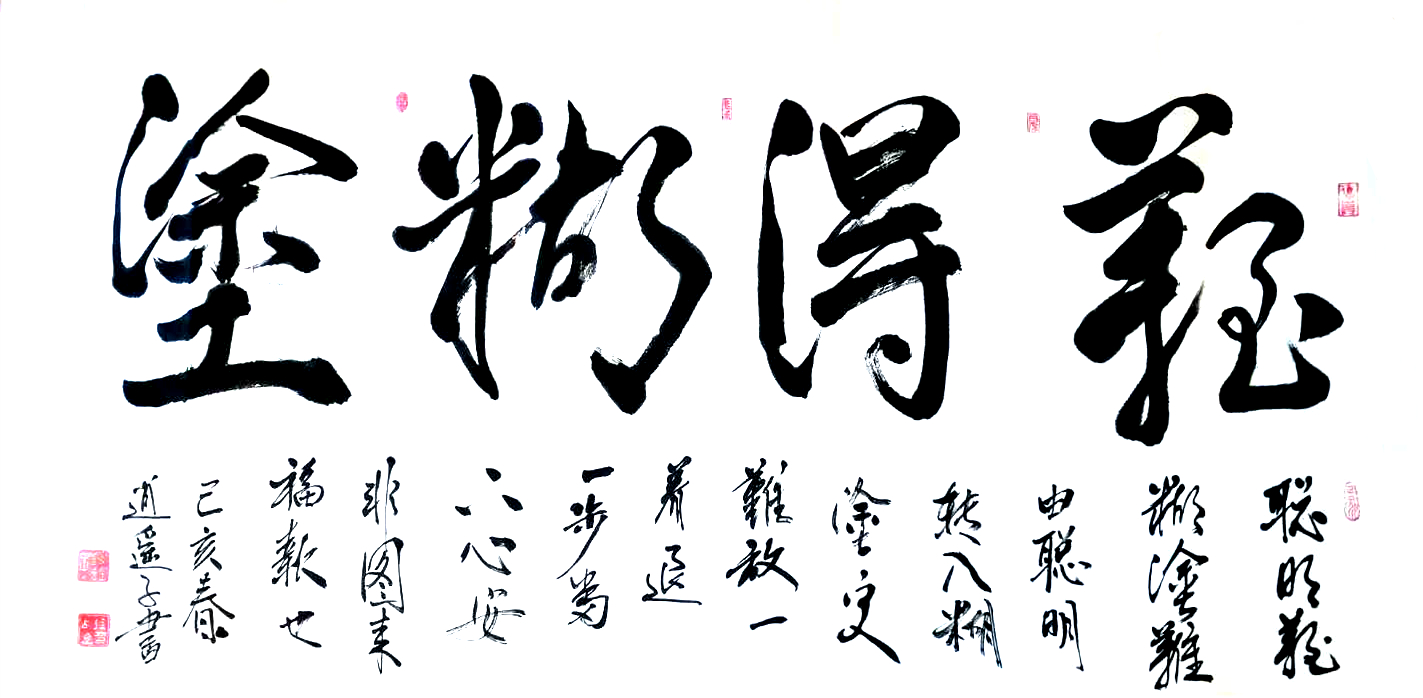 難得糊塗
聪明難
糊塗難
由聪明
转入糊
塗更
難放一
着退
一步當
下心安
非图来
福報也
己亥春
逍遥子書